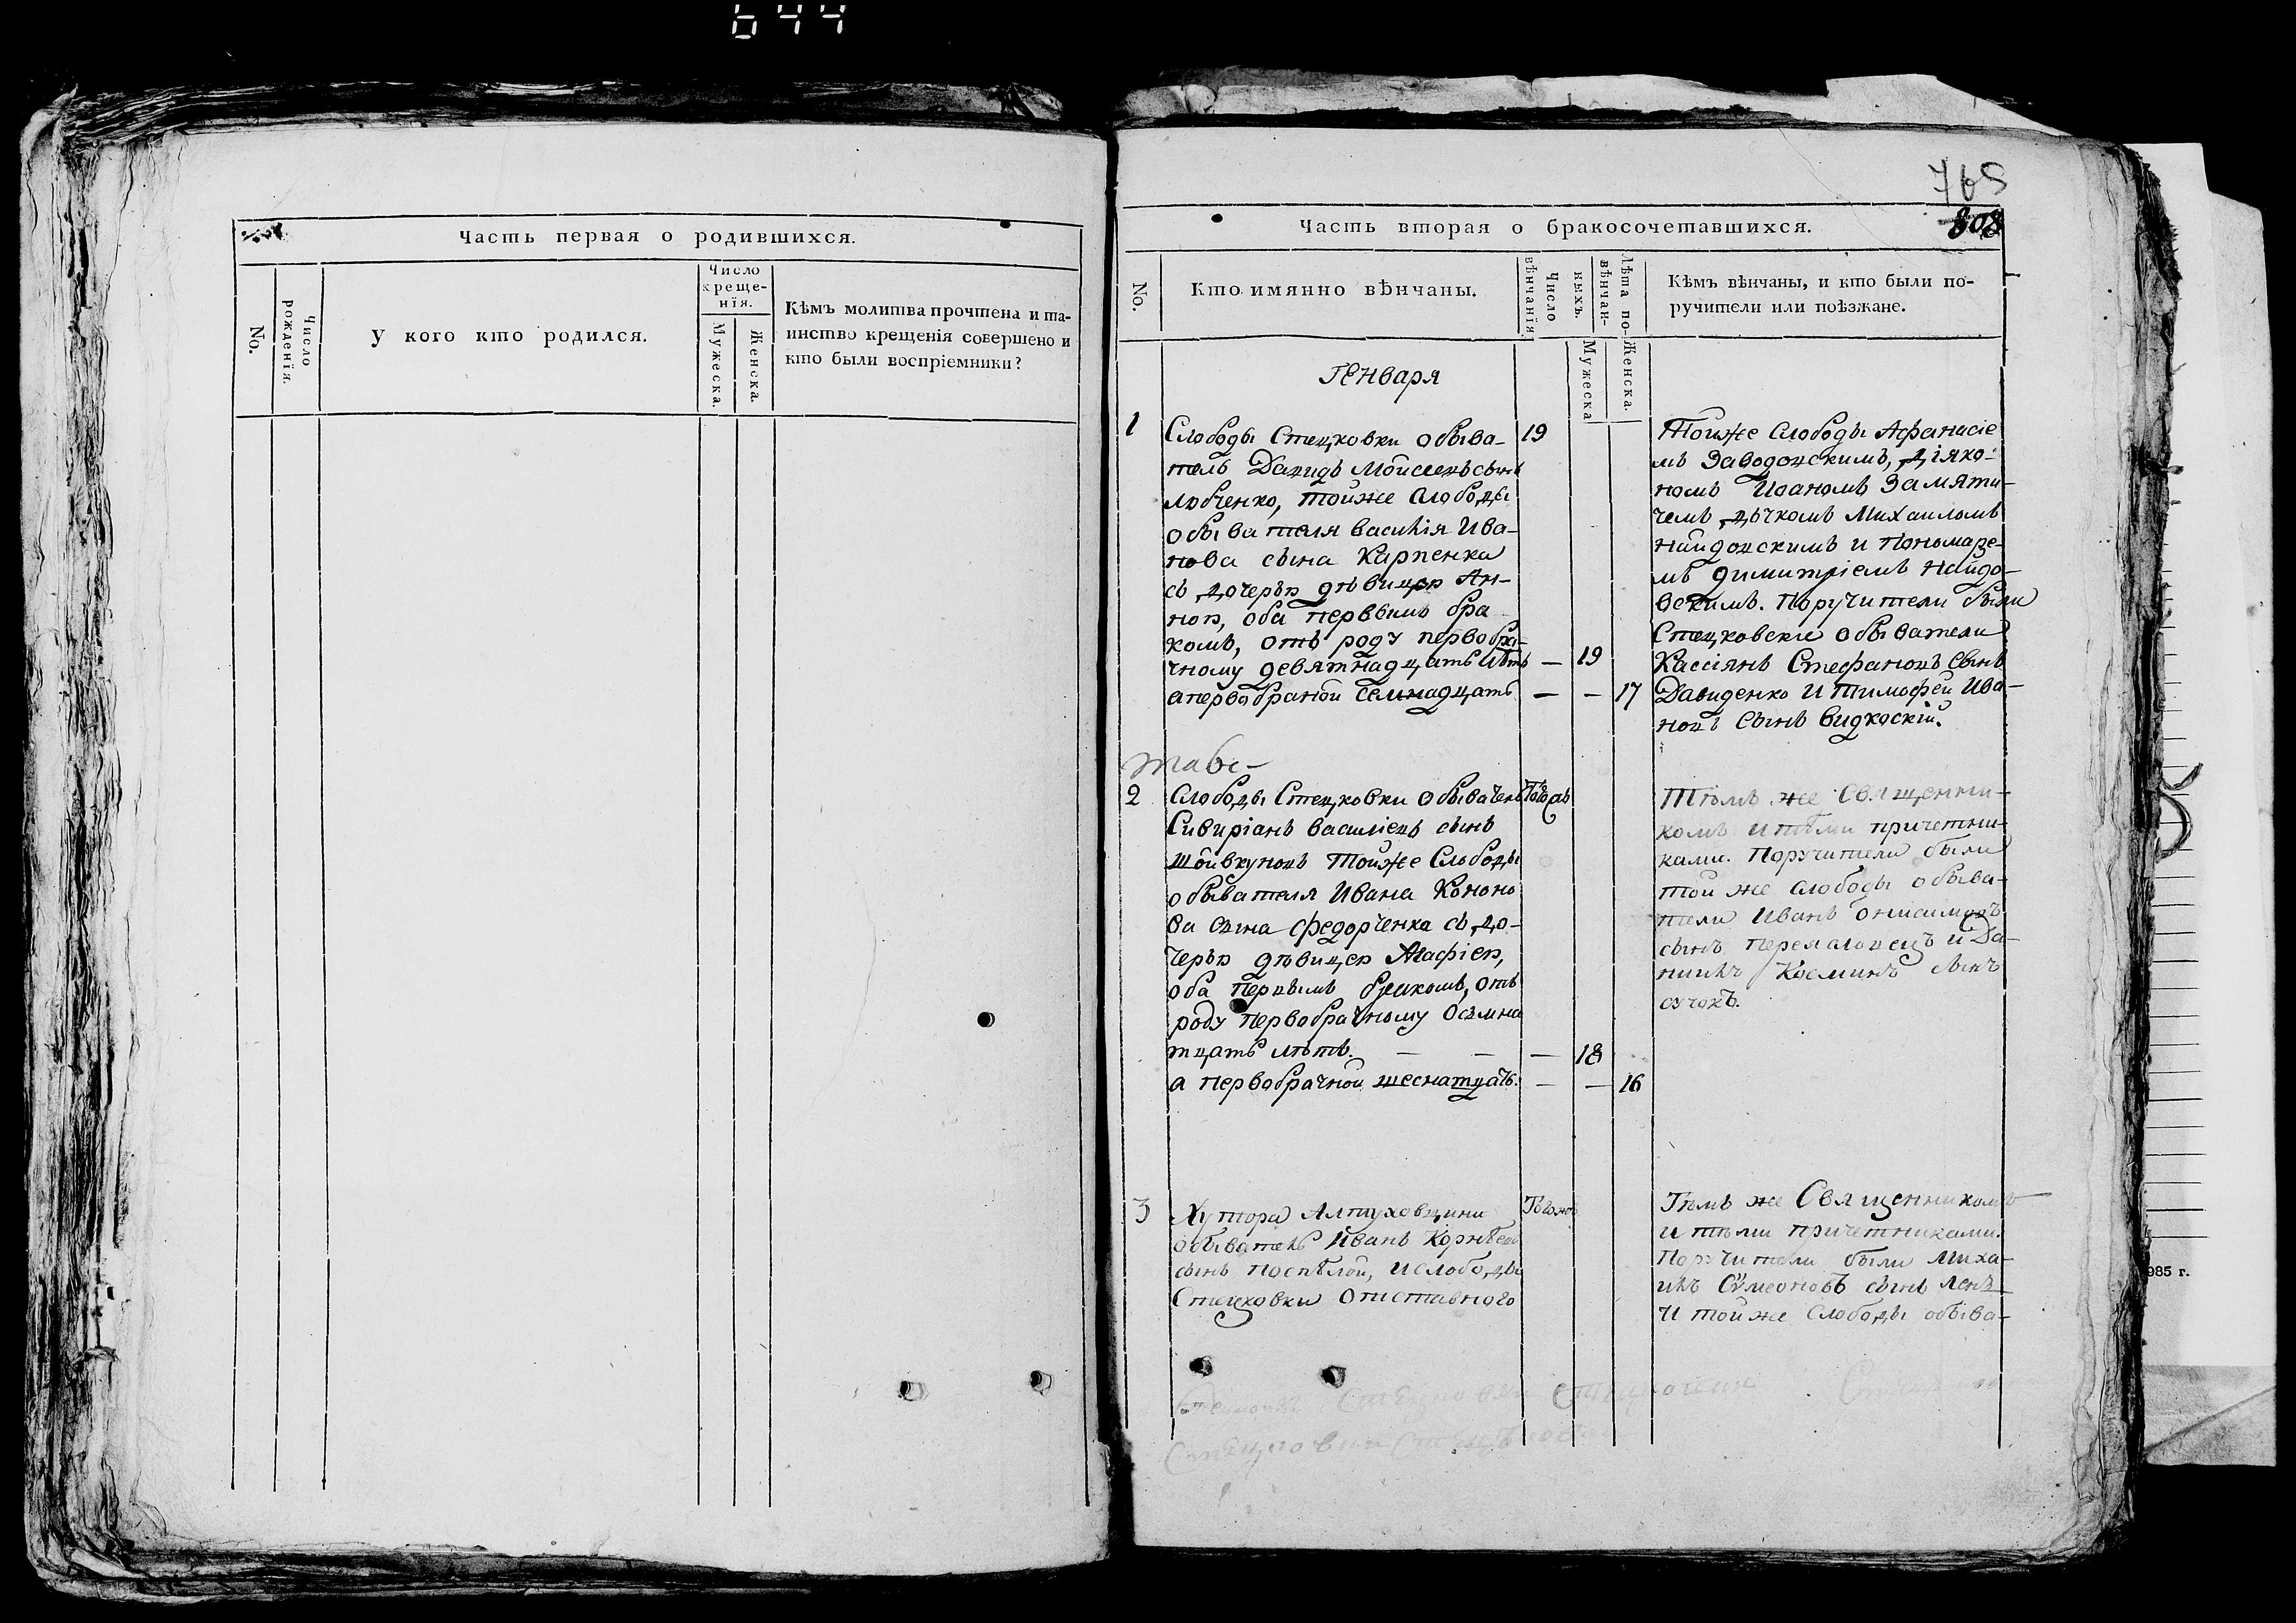 644
Часть первая о родившихся.
No.
Число рожденія.
У кого кто родился.
Число крещенія.
Мужеска.
Женска.
Кѣмъ молитва прочтена и та-
инство крещенія совершено и
кто были воспріемники?
765
808
Часть вторая о бракосочетавшихся.
No.
Кто имянно вѣнчаны.
Число вѣнчанія
Лѣта по-
вѣнчан-
ныхъ.
Мужеска
Женска.
Кѣмъ вѣнчаны, и кто были по-
ручители или поѣзжане.
Генваря
1
Слободы Стецковки обыва-
тель Давидъ Мойсеевъ сынъ
Любченко, тойже слободы
обывателя Василія Ива-
нова сына Карпенка
съ дочерью дѣвицею Ан-
ною, оба первымъ бра
комъ, отъ роду первобра-
чному девятнадцать лѣтъ — 19
а первобраной семнадцать — — 17
19
Тойже слободы Афанасіе
мъ Заводовскимъ, діяко-
номъ Иоаномъ Замяти-
чемъ дьчкомъ Михаиломъ
Найдовскимъ и пономаре-
мъ Димитріемъ Найдо-
вскимъ. Поручители были
Стецковски обыватели
Кассіянъ Стефановъ сынъ
Давиденко и Тимофей Ива-
новъ сынъ
2
Слободы Стецковки обыватель
Сивиріанъ Василіевъ сынъ
Шойвкуновъ тойже слободы
обывателя Ивана Копоно
ва сына Федорченка съ до-
черью дѣвицею Агафіею,
оба первымъ бракомъ, отъ
роду первобрачному осмна
тцать лѣтъ. — — — 18
а первобрачной шеснатцать. — — 16
Тѣмъ же священни-
комъ и тѣми причетни-
ками. Поручители были
той же слободы обыва-
тели Иванъ Онисимовъ
сынъ и Да-
ниилъ Косминъ сынъ
Сучокъ.
3
Хутора Алтуховщини
обыватель Иванъ Корнѣевъ
сынъ Поспѣлой, и слободы
Стецковки отставного
Тогожъ
Тѣмъ же Священникомъ
и тѣми причетниками.
Поручители были Миха-
илъ Сѵмеоновъ сынъ
и той же слободы обыва-
985 г.